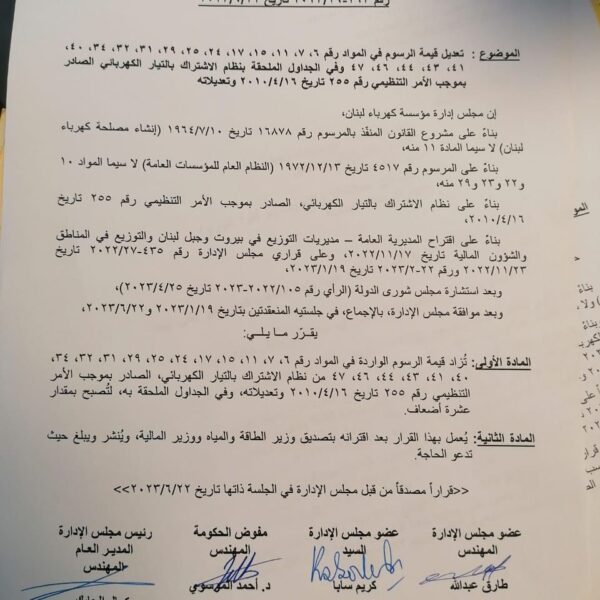 الموضوع : تعديل قيمة الرسوم في المواد رقم ٦، ٧، ١١، ١٥، ١٧، ٢٤، ٢٥، ٢٩، ٣١، ٣٢، ٣٤، ٤٠،
٤١، ٤٣، ٤٤، ٤٦، ٤٧ وفي الجداول الملحقة بنظام الاشتراك بالتيار الكهربائي الصادر
بموجب الأمر التنظيمي رقم ٢٥٥ تاريخ ٢٠١٠/٤/١٦ وتعديلاته
إن مجلس إدارة مؤسسة كهرباء لبنان،
بناءً على مشروع القانون المنفّذ بالمرسوم رقم ١٦٨٧٨ تاريخ ١٩٦٤/٧/١٠ (إنشاء مصلحة كهرباء
لبنان) لا سيما المادة ١١ منه،
بناءً على المرسوم رقم ٤٥١٧ تاريخ ١٩٧٢/١٢/١٣ (النظام العام للمؤسسات العامة) لا سيما المواد ١٠
و٢٢ و٢٣ و٢٩ منه،
بناءً على نظام الاشتراك بالتيار الكهربائي، الصادر بموجب الأمر التنظيمي رقم ٢٥٥ تاريخ
٢٠١٠/٤/١٦،
بناءً على اقتراح المديرية العامة – مديريات التوزيع في بيروت وجبل لبنان والتوزيع في المناطق
والشؤون المالية تاريخ ٢٠٢٢/١١/١٧، وعلى قراري مجلس الإدارة رقم ٤٣٥-٢٠٢٢/٢٧ تاريخ
٢٠٢٢/١١/٢٣ ورقم ٢٢-٢٠٢٣/٢ تاريخ ٢٠٢٣/١/١٩،
وبعد استشارة مجلس شورى الدولة (الرأي رقم ٢٠٢٢/١٠٥-٢٠٢٣ تاريخ ٢٠٢٣/٤/٢٥)،
وبعد موافقة مجلس الإدارة، بالإجماع، في جلستيه المنعقدتين بتاريخ ٢٠٢٣/١/١٩ و٢٠٢٣/٦/٢٢،
يقرّر ما يلي:
المادة الأولى: تُزاد قيمة الرسوم الواردة في المواد رقم ٦، ٧، ١١، ١٥، ١٧، ٢٤، ٢٥، ٢٩، ٣١، ٣٢، ٣٤،
٤٠، ٤١، ٤٣، ٤٤، ٤٦، ٤٧ من نظام الاشتراك بالتيار الكهربائي، الصادر بموجب الأمر
التنظيمي رقم ٢٥٥ تاريخ ٢٠١٠/٤/١٦ وتعديلاته، وفي الجداول الملحقة به، لتُصبح بمقدار
عشرة أضعاف.
المادة الثانية: يُعمل بهذا القرار بعد اقترانه بتصديق وزير الطاقة والمياه ووزير المالية، ويُنشر ويبلغ حيث
تدعو الحاجة.
<<قراراً مصدقاً من قبل مجلس الإدارة في الجلسة ذاتها تاريخ ٢٠٢٣/٦/٢٢>>
عضو مجلس الإدارة
المهندس
طارق عبدالله
عضو مجلس الإدارة
السيد
كريم سابا
مفوض الحكومة
المهندس
د. أحمد الموسوي
رئيس مجلس الإدارة
المدير العام
المهندس